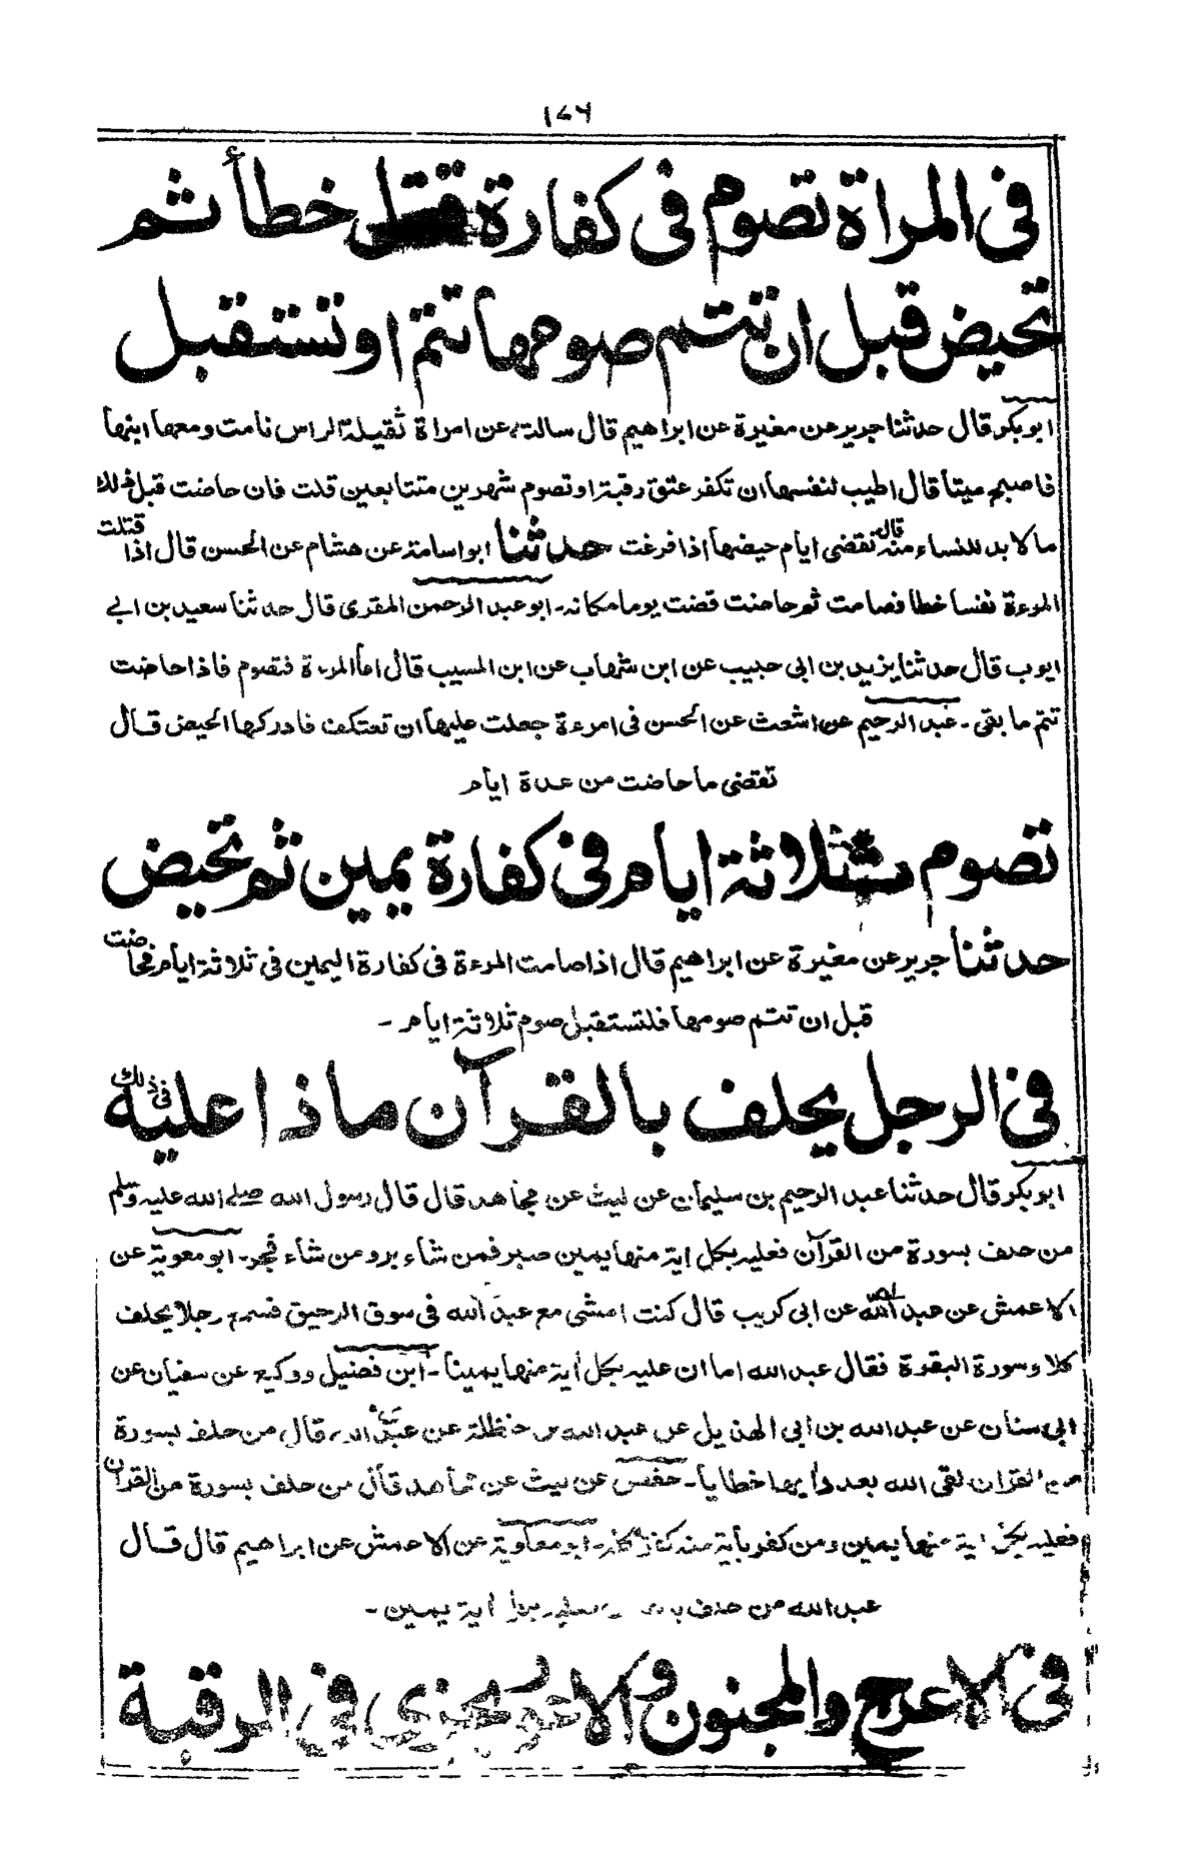 ١٧٦
فى المراة تصوم فى كفارة قتل خطأ ثم
تحيض قبل ان تتم صومها تتم او تستقبل
ابو بكر قال حدثنا جرير عن مغيرة عن ابراهيم قال سالته عن امراة ثقيلة الراس نامت ومعها ابنها
فاصبح ميتا قال اطيب لنفسها ان تكفر عتق رقبة او تصوم شهرين متتابعين قلت فان حاضت قبل ذلك
مالا بد للنساء منه قال تقضى ايام حيضها اذا فرغت حدثنا ابو اسامة عن هشام عن الحسن قال اذا قتلت
المرءة نفسا خطا فصامت ثم حاضت قضت يوما مكانه - ابو عبد الرحمن المقرى قال حدثنا سعيد بن ابى
ايوب قال حدثنا يزيد بن ابى حبيب عن ابن شهاب عن ابن المسيب قال اما المرءة فتصوم فاذا حاضت
تتم ما بقى - عبد الرحيم عن اشعث عن الحسن فى امرءة جعلت عليها ان تعتكف فادركها الحيض قال
تقضى ما حاضت من عدة ايام
تصوم ثلاثة ايام فى كفارة يمين ثم تحيض
حدثنا جرير عن مغيرة عن ابراهيم قال اذا صامت المرءة فى كفارة اليمين فى ثلاثة ايام فحاضت
قبل ان تتم صومها فلتستقبل صوم ثلاثة ايام -
فى الرجل يحلف بالقرآن ماذا عليه فى ذلك
ابو بكر قال حدثنا عبد الرحيم بن سليمان عن ليث عن مجاهد قال قال رسول الله صلى الله عليه وسلم
من حلف بسورة من القرآن فعليه بكل اية منها يمين صبر فمن شاء برو من شاء فجر - ابو معوية عن
الاعمش عن عبد الله عن ابى كريب قال كنت امشى مع عبد الله فى سوق الرحيق فسمع رجلا يحلف
كلا وسورة البقرة فقال عبد الله اما ان عليه بكل أية منها يمينا - ابن فضيل ووكيع عن سفيان عن
ابى سنان عن عبد الله بن ابى الهذيل عن عبد الله بن حنظلة عن عبد الله قال من حلف بسورة
من القران لقى الله بعدد أيها خطايا - حفص عن ليث عن مجاهد قال من حلف بسورة من القران
فعليه بكل اية منها يمين ومن كفر بأية منه كفر كله - ابو معاوية عن الاعمش عن ابراهيم قال قال
عبد الله من حلف فعليه بكل اية يمين -
فى الاعرج والمجنون والاعور يجزى فى الرقبة